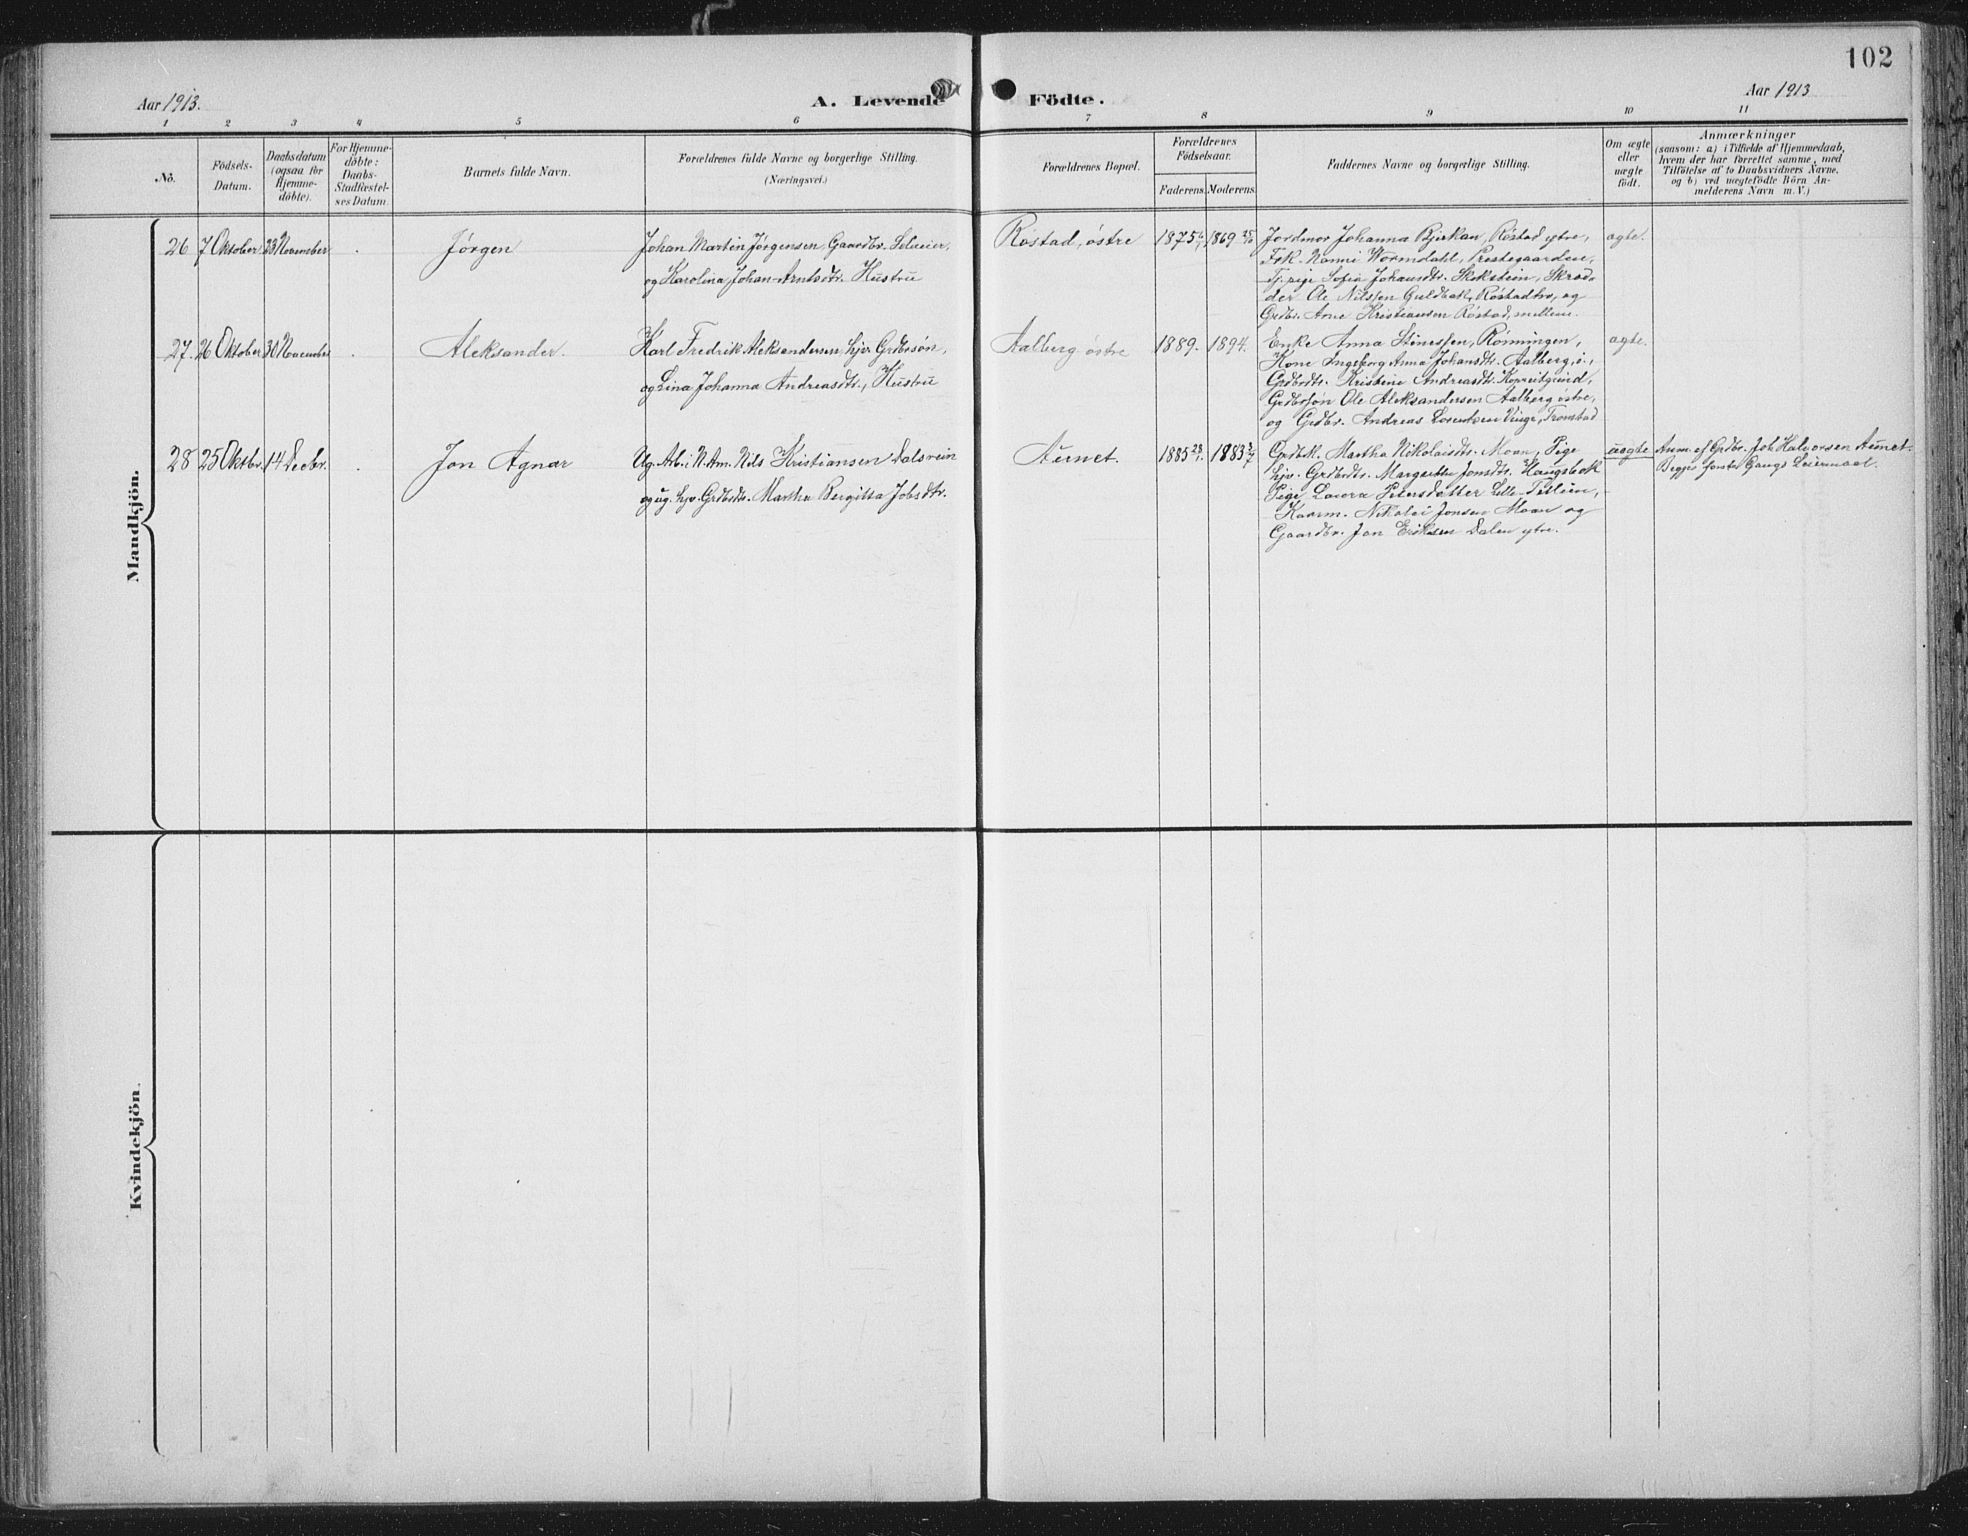 102
Aar 1913.
A. Levende Födte.
Aar 1913
1 2 3 4 5 6 7 8 9 10 11
No.
Födsels-
Datum.
Daabsdatum
(ogsaa for
Hjemme-
döbte).
For Hjemme-
döbte:
Daabs-
Stadfæstel-
ses Datum.
Barnets fulde Navn.
Forældrenes fulde Navne og borgerlige Stilling.
(Næringsvei.)
Forældrenes Bopæl.
Forældrenes
Födselsaar.
Faderens. Moderens.
Faddernes Navne og borgerlige Stilling.
Om ægte
eller
uægte
födt.
Anmærkninger
(saasom: a) i Tilfælde af Hjemmedaab,
hvem der har forrettet samme, med
Tilföielse af to Daabsvidners Navne,
og b) ved uægtefödte Börn An-
melderens Navn m. V.)
Mandkjön.
26 7 Oktober 23 November . Jørgen
Johan Martin Jørgensen, Gaardbr. Selveier,
og Karolina Johan-Arntsdtr. Hustru
Røstad, østre 1875 1869
Jordmor Johanna Bjerkan, Røstad ytre,
Frk. Nanni Wormdahl, Prestegaarden,
Tj. pige Sofia Johansdtr. Stokstein, Skræd-
der Ole Nilssen Guldbæk, Røstadhv, og
Grdbr. Arne Kristiansen Røstad, mellem.
ægte.
27. 26 Oktober 30 November . Aleksander.
Karl Fredrik Aleksandersen, hjv. Grdbrsøn,
og Lina Johanna Andreasdtr., Hustru
Aalberg østre 1889. 1894.
Enke Anna Stinessen, Rønningen,
Kone Ingeborg Anna Johansdtr. Aalberg, ø.,
Grdbrdtr. Kristine Andreasdtr.
Grdbrsøn Ole Aleksandersen Aalberg østre,
og Grdbr. Andreas Lorentsen Vinge, Tromstad
ægte.
28 25 Oktbr. 14 Decbr. . Jon Agnar
Ug. Arb. i N. Am. Nils Kristiansen Dalsvein
og ug. hjv. Grdbrdtr. Martha Bergitta Jobsdtr.
Aunet. 1885 1883
Grdbrk. Martha Nikolaisdtr. Moan, Pige
hjv. Grdbrdtr. Margrethe Jonsdtr. Haugsbak
Pige Laura Petersdatter Lille-Tellien,
Kaarm. Nikolai Jonsen Moan og
Gaardbr. Jon Eriksen Dalen ytre.
uægte
Anm. af Grdbr. Job Halvorsen Aunet.
Begges første Gangs Leiermaal.
Kvindekjön.